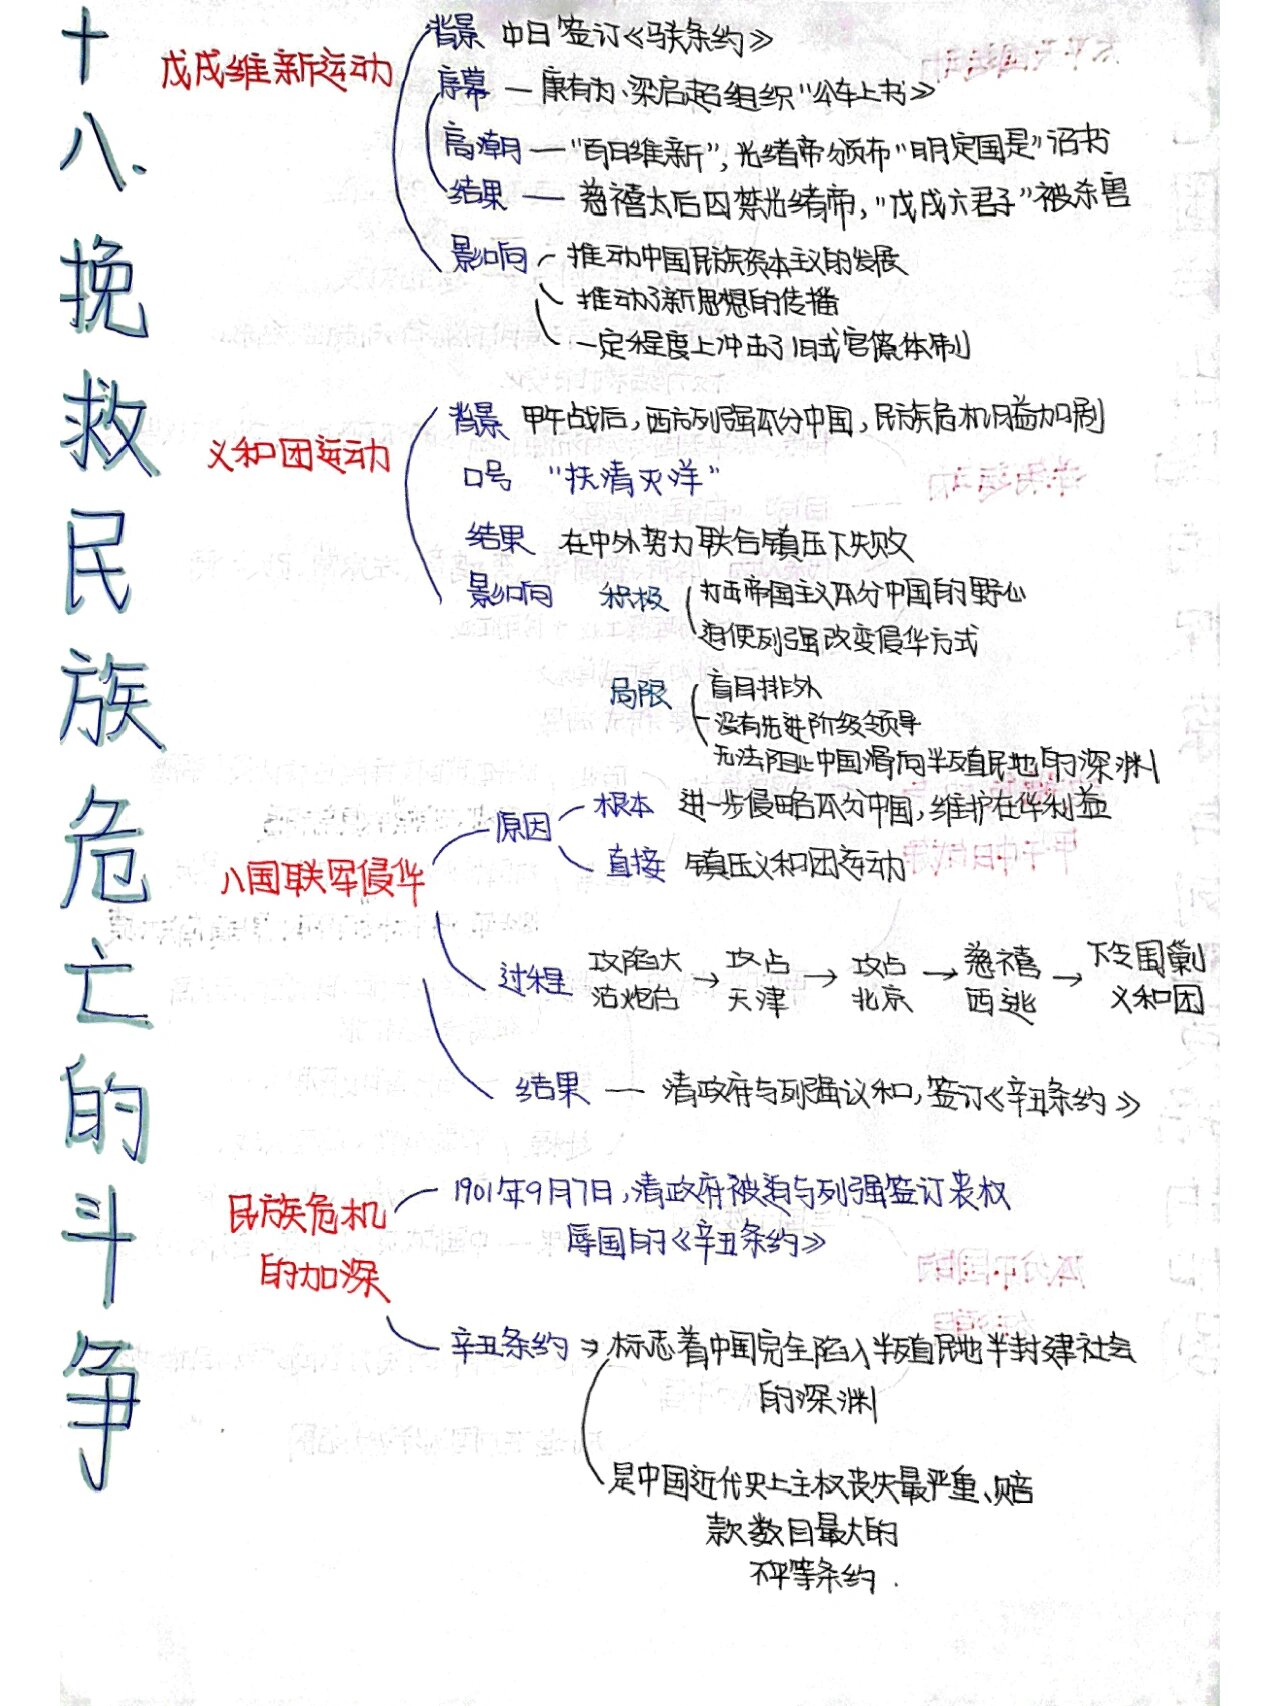 十八、挽救民族危亡的斗争
戊戌维新运动
背景 中日签订《马关条约》
序幕 — 康有为、梁启超组织"公车上书》
高潮 — "百日维新",光绪帝颁布"明定国是"诏书
结果 — 慈禧太后囚禁光绪帝,"戊戌六君子"被杀害
影响 推动中国民族资本主义的发展
推动了新思想的传播
一定程度上冲击了旧式官僚体制
义和团运动
背景 甲午战后,西方列强瓜分中国,民族危机日益加剧
口号 "扶清灭洋"
结果 在中外势力联合镇压下失败
影响 积极 打击帝国主义瓜分中国的野心
迫使列强改变侵华方式
局限 盲目排外
没有先进阶级领导
无法阻止中国滑向半殖民地的深渊
八国联军侵华
原因 根本 进一步侵略瓜分中国,维护在华利益
直接 镇压义和团运动
过程 攻陷大沽炮台 → 攻占天津 → 攻占北京 → 慈禧西逃 → 下令围剿义和团
结果 — 清政府与列强议和,签订《辛丑条约》
民族危机
的加深
1901年9月7日,清政府被迫与列强签订丧权
辱国的《辛丑条约》
辛丑条约 → 标志着中国完全陷入半殖民地半封建社会
的深渊
是中国近代史上主权丧失最严重、赔
款数目最大的
不平等条约.